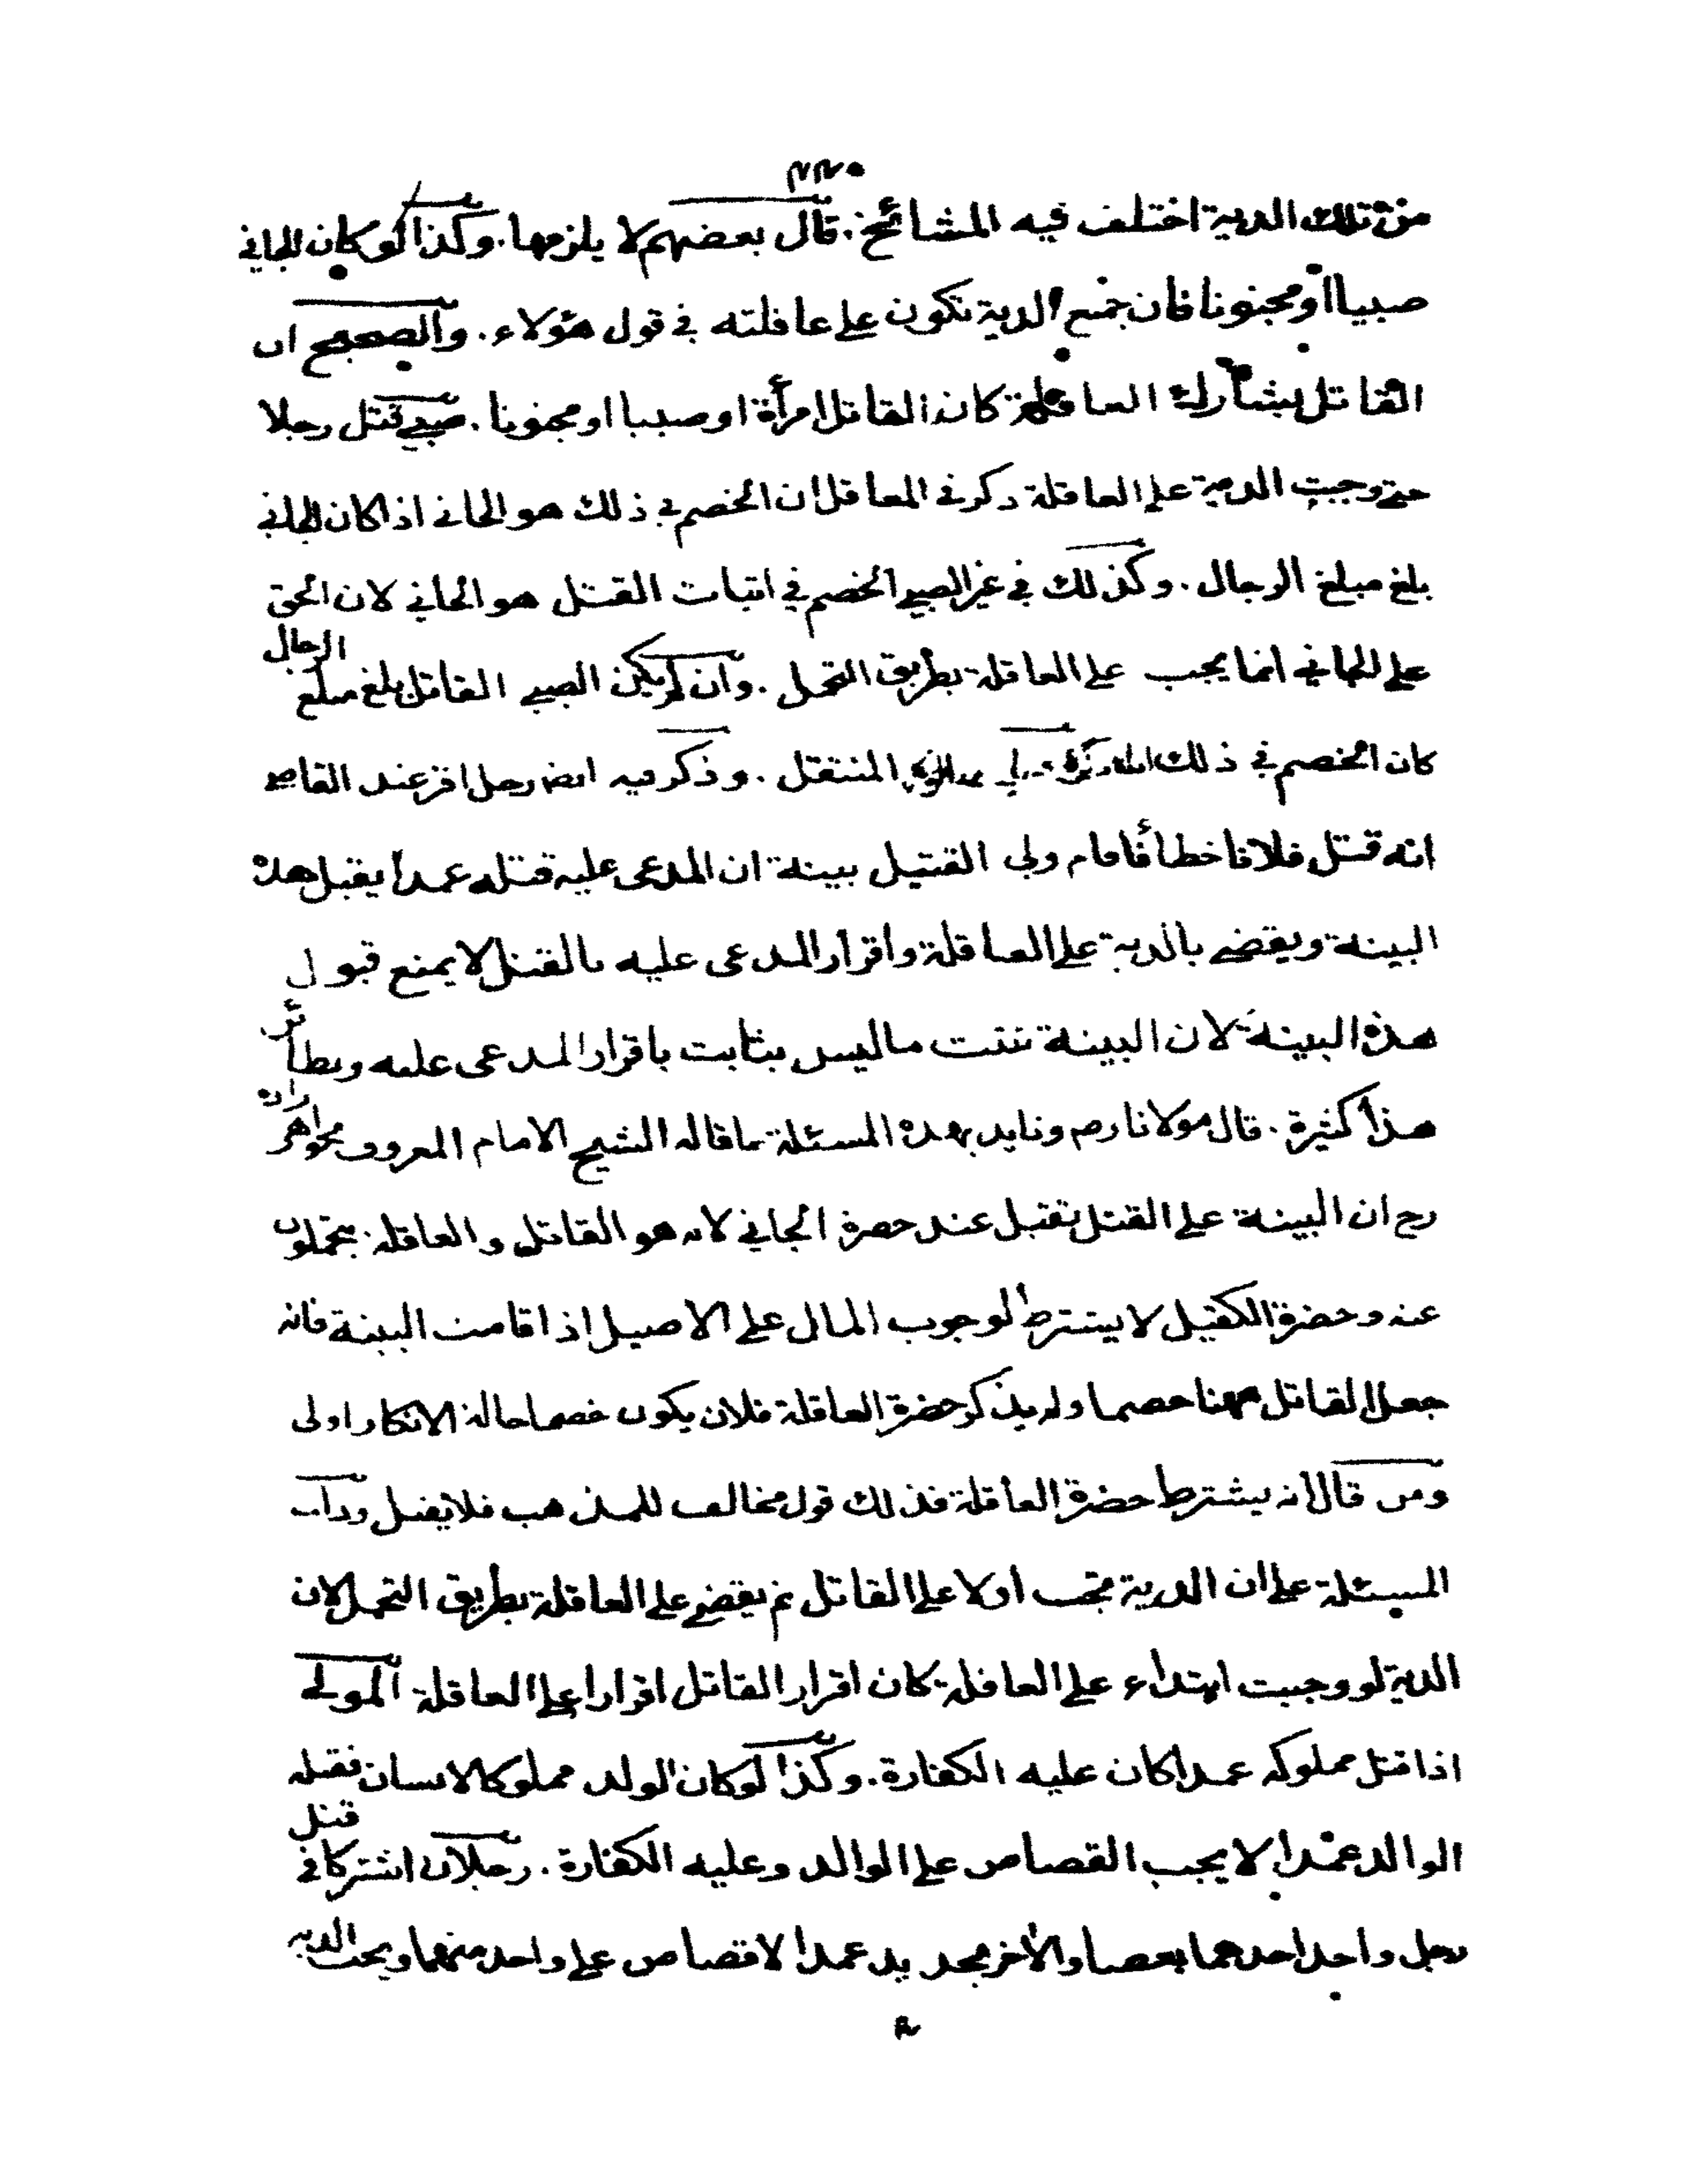 من تلك الدية اختلف فيه المشائخ . قال بعضهم لا يلزمها . وكذا لو كان الجاني
صبيا او مجنونا فان جميع الدية تكون على عاقلته في قول هؤلاء . والصحيح ان
القاتل يشارك العاقلة كان القاتل امرأة او صبيا او مجنونا . صبي قتل رجلا
حتى وجبت الدية على العاقلة ذكر في المعاقل ان الخصم في ذلك هو الجاني اذا كان الجاني
بلغ مبلغ الرجال . وكذلك في غير الصبي الخصم في اثبات القتل هو الجاني لان الحق
على الجاني انما يجب على العاقلة بطريق التحمل . وان لم يكن الصبي القاتل بلغ مبلغ الرجال
كان الخصم في ذلك المنتقل . وذكر فيه ايضا رجل اقر عند القاضي
انه قتل فلانا خطأ فاقام ولي القتيل بينة ان المدعى عليه قتله عمدا يقبل هذه
البينة ويقضي بالدية على العاقلة واقرار المدعى عليه بالقتل لا يمنع قبول
هذه البينة لان البينة تثبت ما ليس بثابت باقرار المدعى عليه ونظائر
هذا كثيرة . قال مولانا رض وتايد بهذه المسئلة ما قاله الشيخ الامام المعروف بخواهر زاده
رح ان البينة على القتل تقبل عند حضرة الجاني لانه هو القاتل والعاقلة يتحملون
عنه وحضرة الكفيل لا يشترط لوجوب المال على الاصيل اذا قامت البينة فانه
جعل القاتل ههنا خصما ولم يذكر حضرة العاقلة فلان يكون خصما حالة الانكار اولى
ومن قال انه يشترط حضرة العاقلة فذلك قول مخالف للمذهب فلا يقبل ودلت
المسئلة على ان الدية تجب اولا على القاتل ثم يقضي على العاقلة بطريق التحمل لان
الدية لو وجبت ابتداء على العاقلة كان اقرار القاتل اقرارا على العاقلة المولى
اذا قتل مملوكه عمدا كان عليه الكفارة . وكذا لو كان الولد مملوكا لانسان فقتله
الوالد عمدا لا يجب القصاص على الوالد وعليه الكفارة . رجلان اشتركا في قتل
رجل واحد احدهما بعصا والآخر بحديد عمدا لا قصاص على واحد منهما ويجب الدية